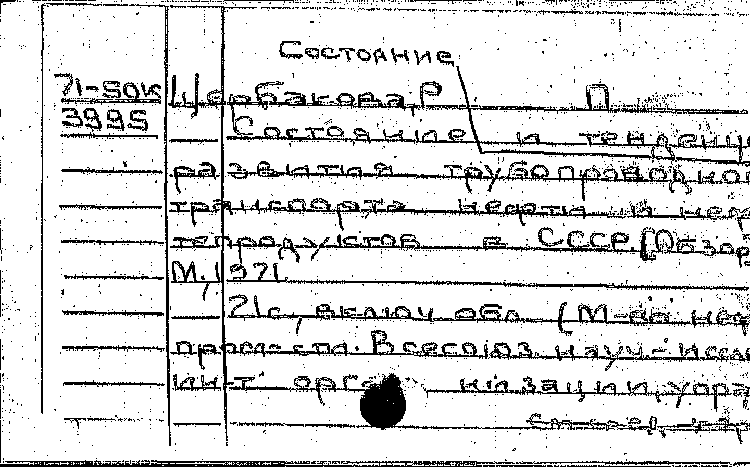 Состояние
71-50к Щербакова, Р П
3995 Состояние и тенденц
развития трубопроводно
транспорта нефти и неф
тепродуктов в СССР [Обзор
М, 1971
71с, включ обл (М-во неф
пром-сти. Всесоюз науч-иссл
ин-т организации, упра
см-след,